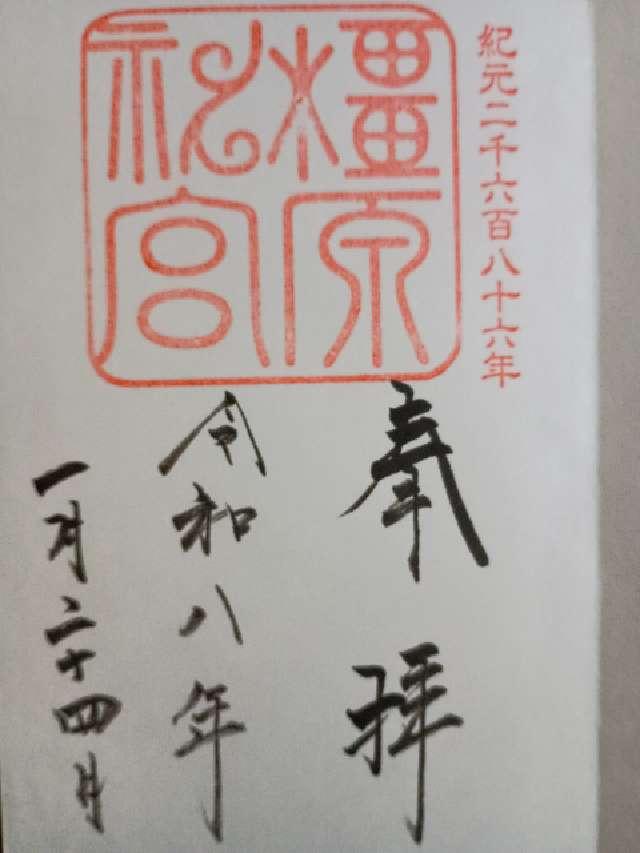 紀元二千六百八十六年
橿原
神宮
奉拝
令和八年
一月二十四日